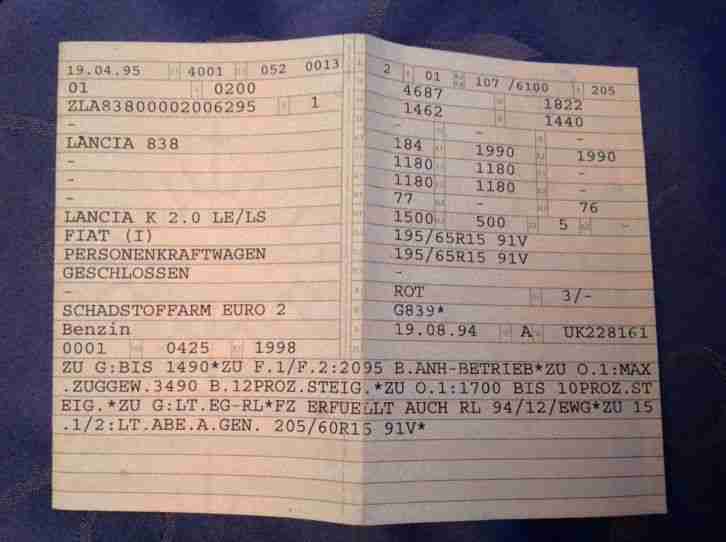 19.04.95 4001 052 0013
01 0200
ZLA83800002006295 1
-
LANCIA 838
-
-
-
LANCIA K 2.0 LE/LS
FIAT (I)
PERSONENKRAFTWAGEN
GESCHLOSSEN
-
SCHADSTOFFARM EURO 2
Benzin
0001 0425 1998
2 01 107 /6100 205
4687 1822
1462 1440
- - -
184 1990 1990
1180 1180 -
1180 1180 -
77 - 76
1500 500 5 -
195/65R15 91V
195/65R15 91V
-
ROT 3/-
G839*
19.08.94 A UK228161
ZU G:BIS 1490*ZU F.1/F.2:2095 B.ANH-BETRIEB*ZU O.1:MAX
.ZUGGEW.3490 B.12PROZ.STEIG.*ZU O.1:1700 BIS 10PROZ.ST
EIG.*ZU G:LT.EG-RL*FZ ERFUELLT AUCH RL 94/12/EWG*ZU 15
.1/2:LT.ABE.A.GEN. 205/60R15 91V*